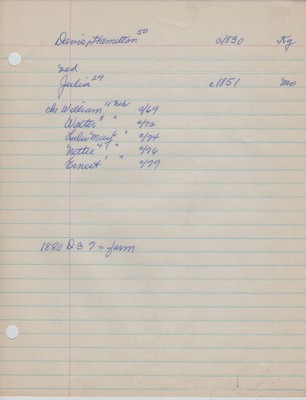 Davis, Hamilton 50 c/1830 Ky
md
Julia 29 c1851 Mo
ch: William 11 Neb c/69
Walter 8 " c/72
Lulu May 6 " c/74
Nettie 4 " c/76
Ernest 1 " c/79
1880 D 3 7 = farm